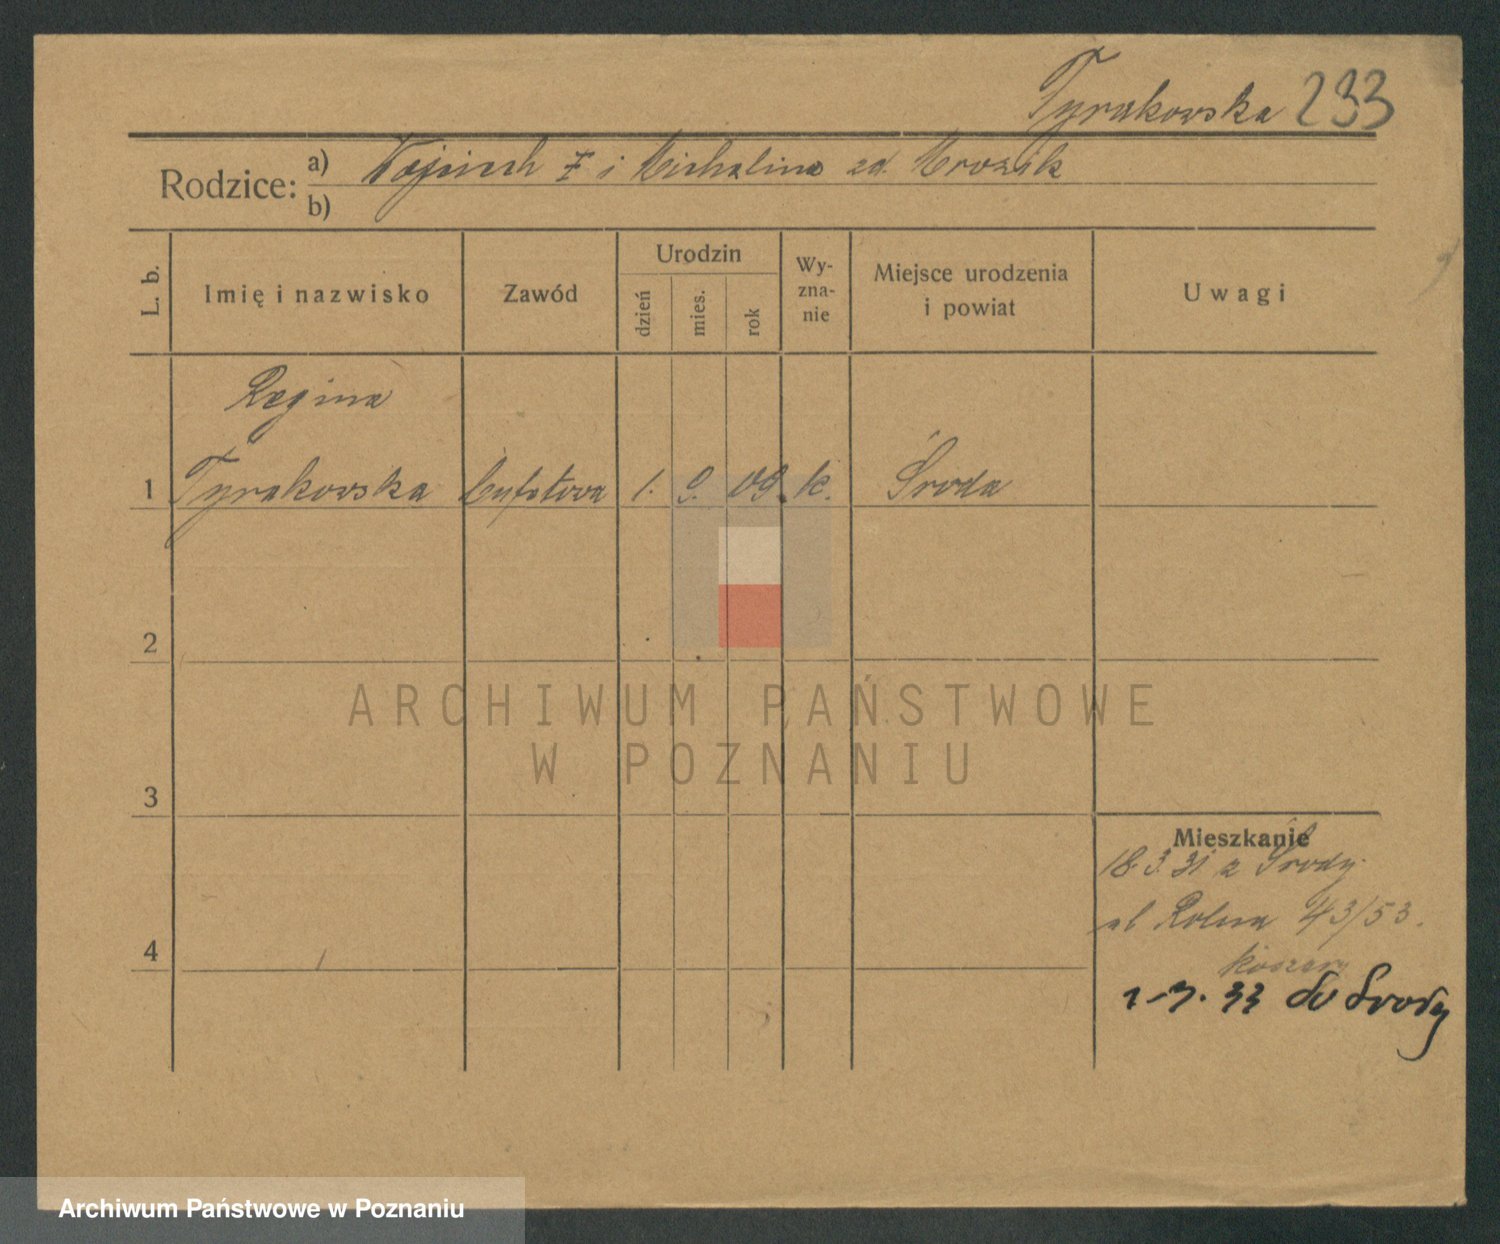 Tyrakowska 233
Rodzice:
a) Wojciech i Michalina zd. Mrozik
b)
L. b.
Imię i nazwisko
Zawód
Urodzin
dzień
mies.
rok
Wy-
zna-
nie
Miejsce urodzenia
i powiat
Uwagi
Regina
1 Tyrakowska bufetowa 1. 9. 09. k. Środa
2
3
4
Mieszkanie
18.3.31 z Środy
ul Rolna 43/53.
koszary
1-7. 33 do Środy
ARCHIWUM PAŃSTWOWE
W POZNANIU
Archiwum Państwowe w Poznaniu